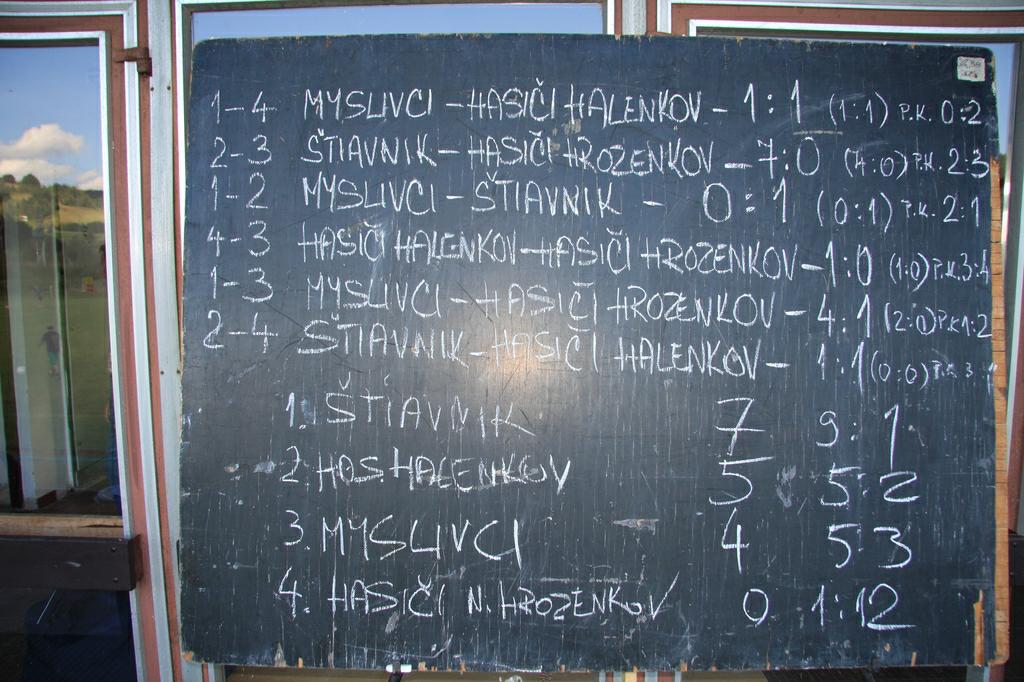 1-4 MYSLIVCI - HASIČI HALENKOV - 1:1 (1:1) P.K. 0:2
2-3 ŠTIAVNIK - HASIČI HROZENKOV - 7:0 (4:0) P.K. 2:3
1-2 MYSLIVCI - ŠTIAVNIK - 0:1 (0:1) P.K. 2:1
4-3 HASIČI HALENKOV - HASIČI HROZENKOV - 1:0 (1:0) P.K. 3:4
1-3 MYSLIVCI - HASIČI HROZENKOV - 4:1 (2:0) P.K 1:2
2-4 ŠTIAVNIK - HASIČI HALENKOV - 1:1 (0:0)
1. ŠTIAVNIK 7 9:1
2. HAS. HALENKOV 5 5:2
3. MYSLIVCI 4 5:3
4. HASIČI N. HROZENKOV 0 1:12